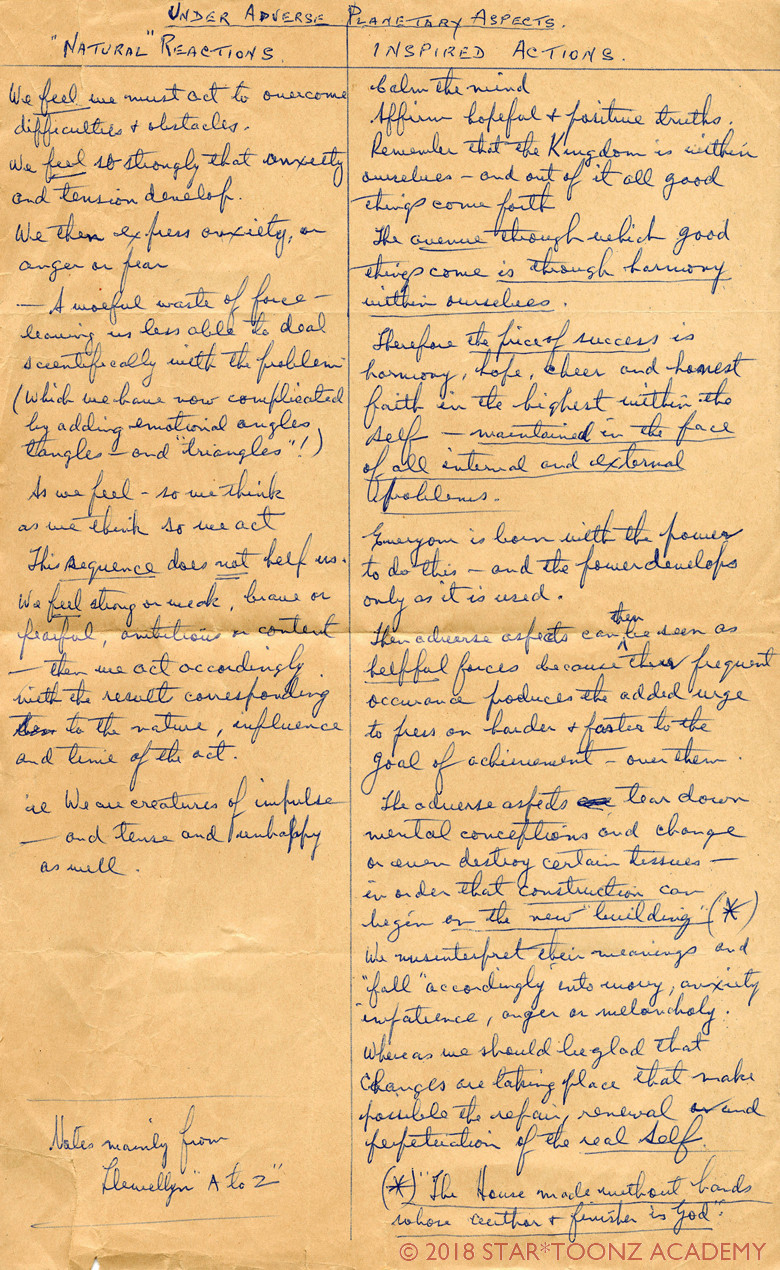 UNDER ADVERSE PLANETARY ASPECTS.
"NATURAL" REACTIONS.
We feel we must act to overcome
difficulties & obstacles.
We feel so strongly that anxiety
and tension develop.
We then express anxiety, or
anger or fear
— A woeful waste of force —
leaving us less able to deal
scientifically with the problem
(Which we have now complicated
by adding emotional angles,
tangles — and "triangles"!)
As we feel - so we think
as we think so we act
This sequence does not help us.
We feel strong or weak, brave or
fearful, ambitious or content
— then we act accordingly
with the result corresponding
to the nature, influence
and time of the act.
ie We are creatures of impulse
— and tense and unhappy
as well.
Notes mainly from
Llewellyn "A to Z"
INSPIRED ACTIONS.
Calm the mind
Affirm hopeful & positive truths.
Remember that the Kingdom is within
ourselves — and out of it all good
things come forth
The avenue through which good
things come is through harmony
within ourselves.
Therefore the price of success is
harmony, hope, cheer and honest
faith in the highest within the
self — maintained in the face
of all internal and external
problems.
Everyone is born with the power
to do this — and the power develops
only as it is used.
Then adverse aspects can then be seen as
helpful forces because their frequent
occurance produces the added urge
to press on harder & faster to the
goal of achievement — over them.
The adverse aspects tear down
mental conceptions and change
or even destroy certain tissues —
in order that construction can
begin on the new "building" (*)
We misinterpret their meanings and
"fall" accordingly into worry, anxiety
impatience, anger or melancholy.
Whereas we should be glad that
changes are taking place that make
possible the repair, renewal and
perpetuation of the real self.
(*) "The House made without hands
whose author & finisher is God".
© 2018 STAR*TOONZ ACADEMY